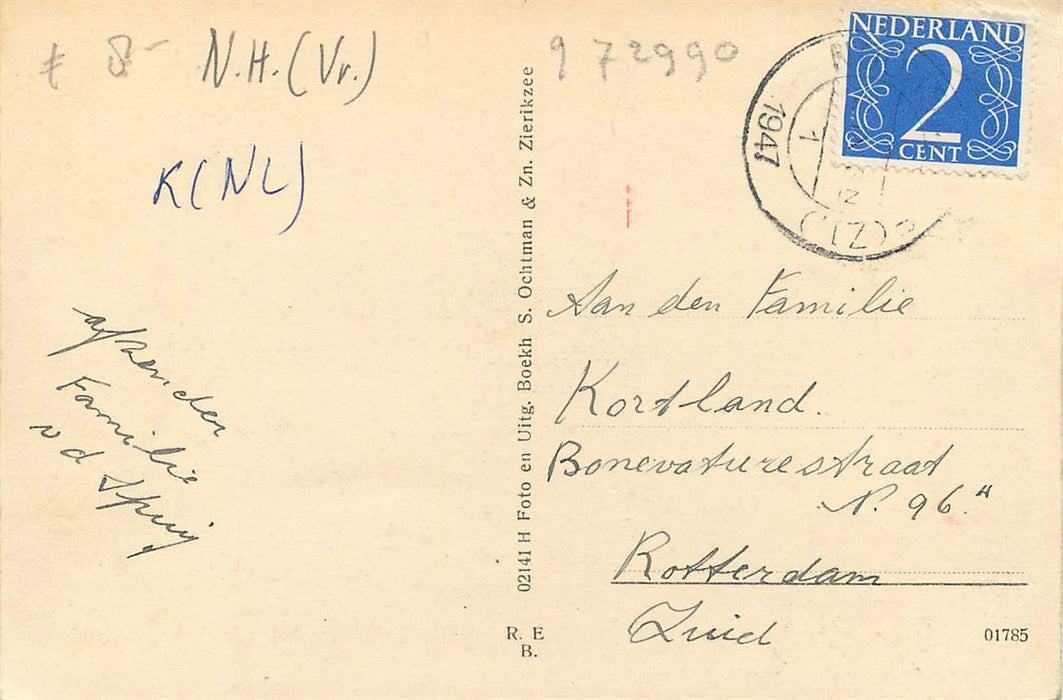 8-
N.H. (Vr.)
972990
K(NL)
NEDERLAND
2
CENT
1947
1
afzender
Familie
vd Spuij
02141 H Foto en Uitg. Boekh S. Ochtman & Zn. Zierikzee
Aan den Familie
Kortland.
Bonevaturestraat
N. 96.
Rotterdam
Zuid
R. E
B.
01785